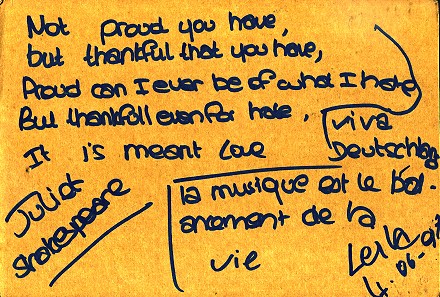 Not proud you have,
but thankful that you have,
Proud can I ever be of what I hate
But thankfull even for hate,
It is meant love
viva
Deutschlag
Juliet
shakespeare
la musique est le bal.
ancement de la
vie